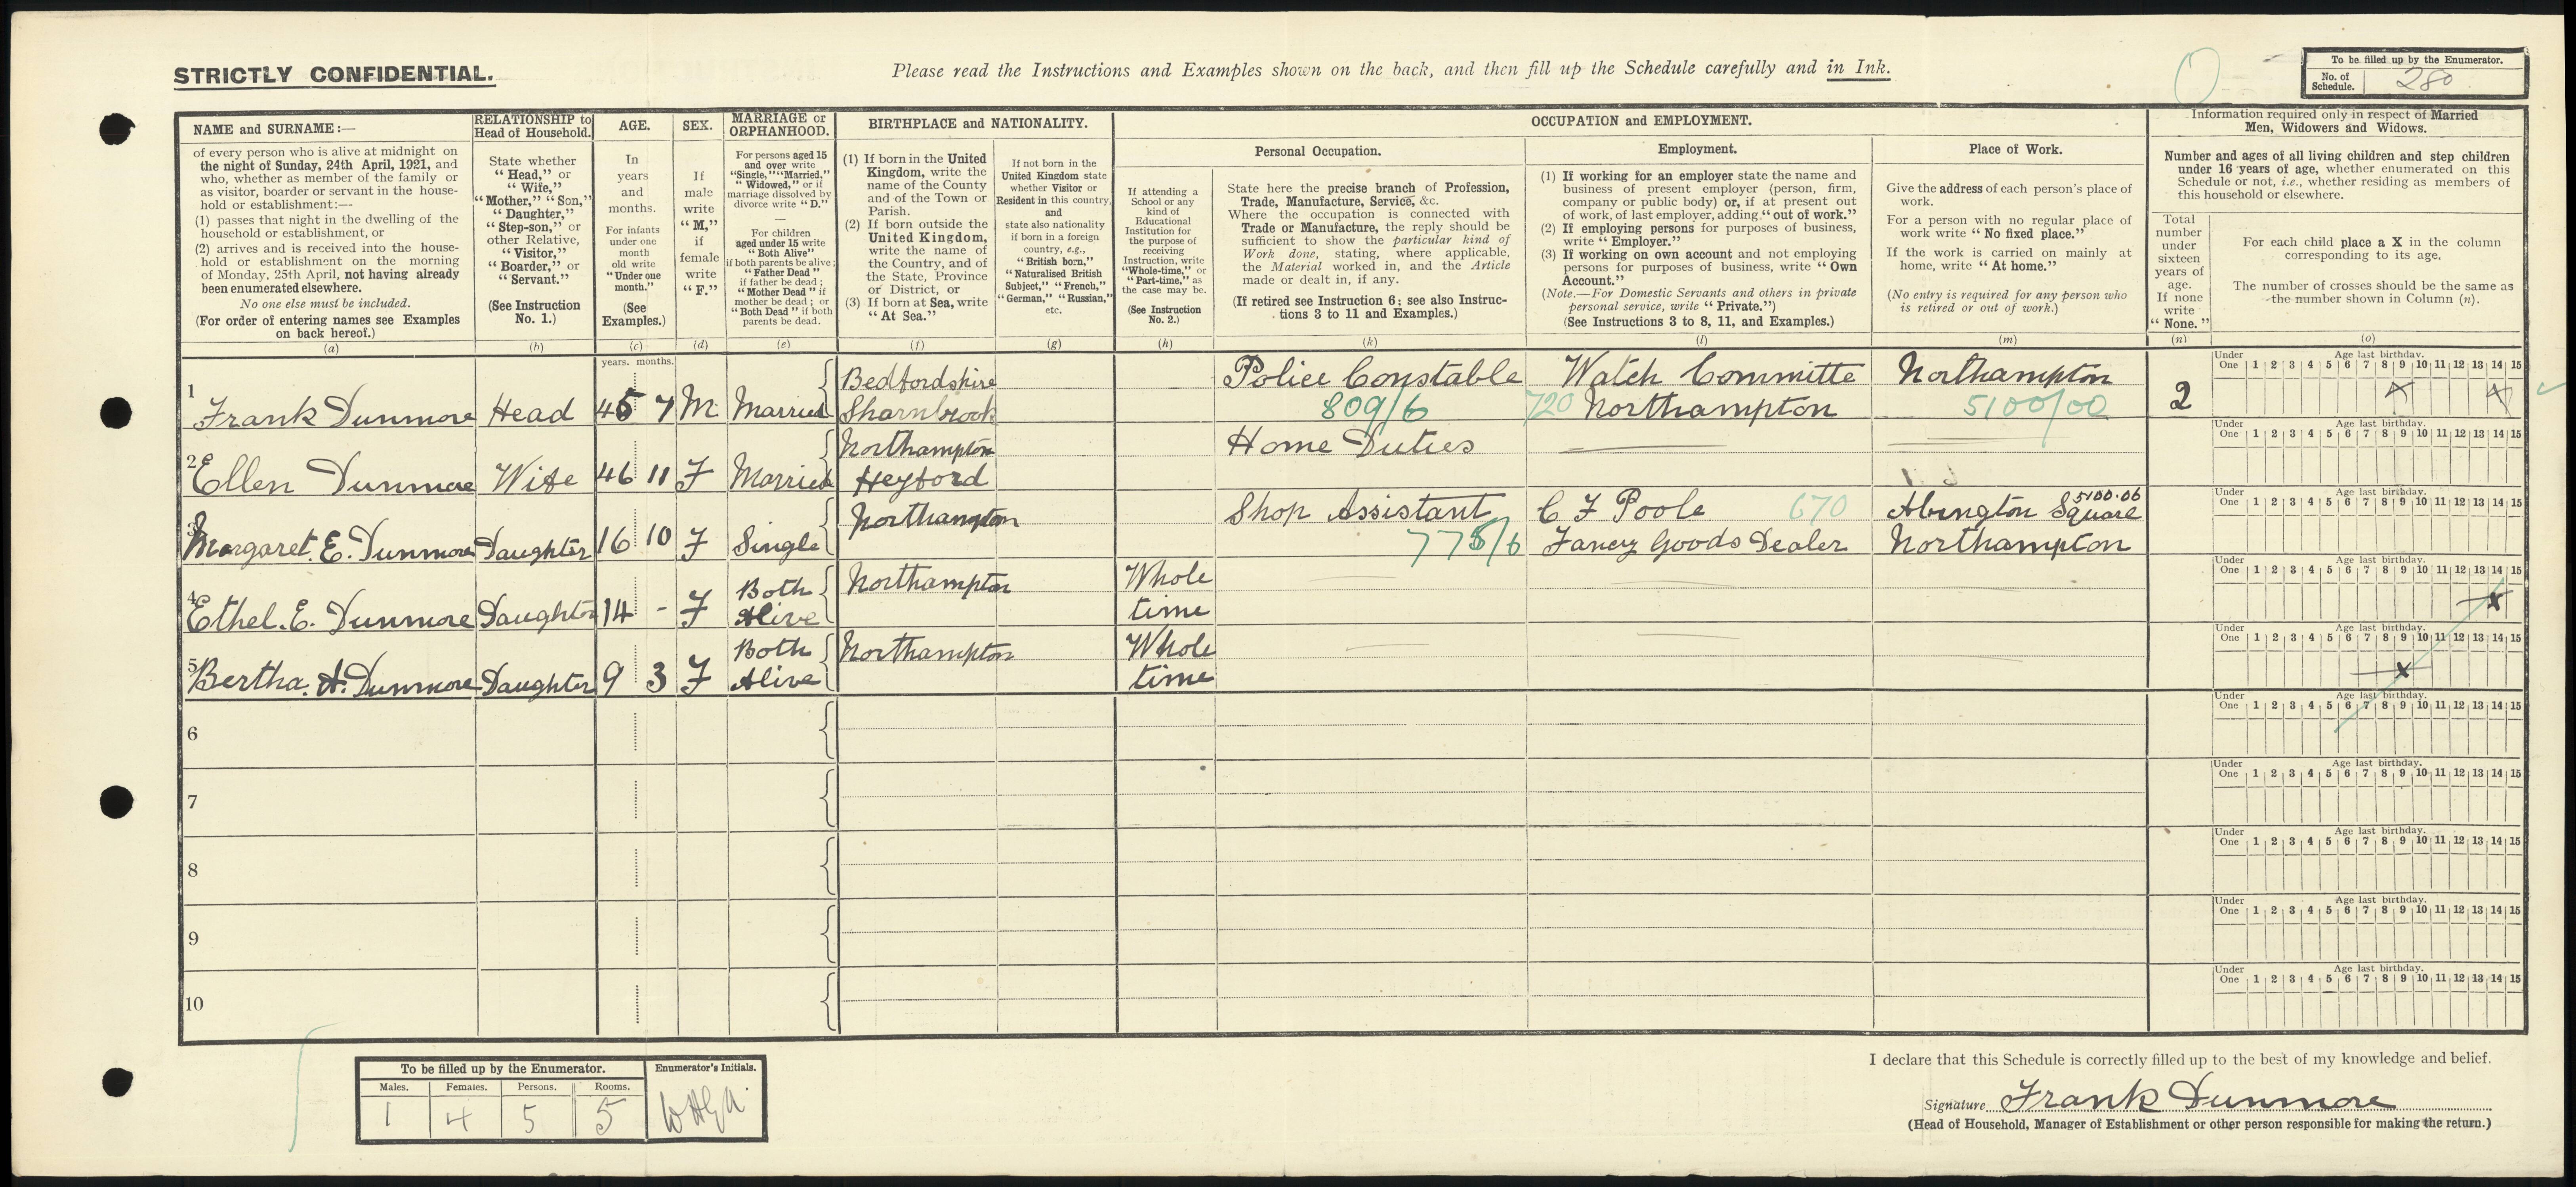 STRICTLY CONFIDENTIAL.
Please read the Instructions and Examples shown on the back, and then fill up the Schedule carefully and in Ink.
To be filled up by the Enumerator.
No. of Schedule. 280
NAME and SURNAME:—
of every person who is alive at midnight on
the night of Sunday, 24th April, 1921, and
who, whether as member of the family or
as visitor, boarder or servant in the house-
hold or establishment:—
(1) passes that night in the dwelling of the
household or establishment, or
(2) arrives and is received into the house-
hold or establishment on the morning
of Monday, 25th April, not having already
been enumerated elsewhere.
No one else must be included.
(For order of entering names see Examples
on back hereof.)
(a)
RELATIONSHIP to
Head of Household.
State whether
"Head," or
"Wife,"
"Mother," "Son,"
"Daughter,"
"Step-son," or
other Relative,
"Visitor,"
"Boarder," or
"Servant."
(See Instruction
No. 1.)
(b)
AGE.
In
years
and
months.
For infants
under one
month
old write
"Under one
month."
(See
Examples.)
(c)
SEX.
If
male
write
"M,"
if
female
write
"F."
(d)
MARRIAGE or
ORPHANHOOD.
For persons aged 15
and over write
"Single," "Married."
"Widowed," or if
marriage dissolved by
divorce write "D."
—
For children
aged under 15 write
"Both Alive"
if both parents be alive;
"Father Dead"
if father be dead;
"Mother Dead" if
mother be dead; or
"Both Dead" if both
parents be dead.
(e)
BIRTHPLACE and NATIONALITY.
(1) If born in the United
Kingdom, write the
name of the County
and of the Town or
Parish.
(2) If born outside the
United Kingdom,
write the name of
the Country, and of
the State, Province
or District, or
(3) If born at Sea, write
"At Sea."
(f)
If not born in the
United Kingdom state
whether Visitor or
Resident in this country,
and
state also nationality
if born in a foreign
country, e.g.,
"British born,"
"Naturalised British
Subject," "French,"
"German," "Russian,"
etc.
(g)
OCCUPATION and EMPLOYMENT.
If attending a
School or any
kind of
Educational
Institution for
the purpose of
receiving
Instruction, write
"Whole-time," or
"Part-time," as
the case may be.
(See Instruction
No. 2.)
(h)
Personal Occupation.
State here the precise branch of Profession,
Trade, Manufacture, Service, &c.
Where the occupation is connected with
Trade or Manufacture, the reply should be
sufficient to show the particular kind of
Work done, stating, where applicable,
the Material worked in, and the Article
made or dealt in, if any.
(If retired see Instruction 6; see also Instruc-
tions 3 to 11 and Examples.)
(k)
Employment.
(1) If working for an employer state the name and
business of present employer (person, firm,
company or public body) or, if at present out
of work, of last employer, adding "out of work."
(2) If employing persons for purposes of business,
write "Employer."
(3) If working on own account and not employing
persons for purposes of business, write "Own
Account."
(Note.—For Domestic Servants and others in private
personal service, write "Private.")
(See Instructions 3 to 8, 11, and Examples.)
(l)
Place of Work.
Give the address of each person's place of
work.
For a person with no regular place of
work write "No fixed place."
If the work is carried on mainly at
home, write "At home."
(No entry is required for any person who
is retired or out of work.)
(m)
Information required only in respect of Married
Men, Widowers and Widows.
Number and ages of all living children and step children
under 16 years of age, whether enumerated on this
Schedule or not, i.e., whether residing as members of
this household or elsewhere.
Total
number
under
sixteen
years of
age.
If none
write
"None."
(n)
For each child place a X in the column
corresponding to its age.
The number of crosses should be the same as
the number shown in Column (n).
(o)
years. months.
1 Frank Dunmore Head 45 7 M Married Bedfordshire Sharnbrook Police Constable 809/6 Watch Committe 720 Northampton Northampton 5100/00 2
Under One 1 2 3 4 5 6 7 8 9 10 11 12 13 14 15
Age last birthday.
X X
2 Ellen Dunmore Wife 46 11 F Married Northampton Heyford Home Duties
Under One 1 2 3 4 5 6 7 8 9 10 11 12 13 14 15
Age last birthday.
3 Margaret. E. Dunmore Daughter 16 10 F Single Northampton Shop Assistant 775/6 C F Poole 670 Fancy Goods Dealer Abington Square 5100.06 Northampton
Under One 1 2 3 4 5 6 7 8 9 10 11 12 13 14 15
Age last birthday.
4 Ethel. E. Dunmore Daughter 14 - F Both Alive Northampton Whole time
Under One 1 2 3 4 5 6 7 8 9 10 11 12 13 14 15
Age last birthday.
X
5 Bertha. A. Dunmore Daughter 9 3 F Both Alive Northampton Whole time
Under One 1 2 3 4 5 6 7 8 9 10 11 12 13 14 15
Age last birthday.
X
6
Under One 1 2 3 4 5 6 7 8 9 10 11 12 13 14 15
Age last birthday.
7
Under One 1 2 3 4 5 6 7 8 9 10 11 12 13 14 15
Age last birthday.
8
Under One 1 2 3 4 5 6 7 8 9 10 11 12 13 14 15
Age last birthday.
9
Under One 1 2 3 4 5 6 7 8 9 10 11 12 13 14 15
Age last birthday.
10
Under One 1 2 3 4 5 6 7 8 9 10 11 12 13 14 15
Age last birthday.
To be filled up by the Enumerator.
Males. Females. Persons. Rooms.
1 4 5 5
Enumerator's Initials.
I declare that this Schedule is correctly filled up to the best of my knowledge and belief.
Signature Frank Dunmore
(Head of Household, Manager of Establishment or other person responsible for making the return.)